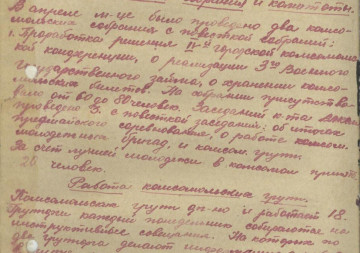 собрания и кагоготы.
В апреле м-це было проведено два комсо-
мольских собрания с повесткой собраний:
1. Проработка решения II-й городской комсомольс
кой конференции, о реализации 3го Военного
Государственного займа, о хранении комсо-
мольских билетов. На собрании присутствова-
ло от 60 до 80 человек. Заседаний к-та ВЛКСМ
проведено 3, с повесткой заседаний: об итогах
предмайского соревнования, о работе комсом.
молодежных бригад, и комсом. групп.
За счет лучшей молодежи в комсомол приня
28 человек.
Работа комсомольских групп.
Комсомольских групп 18.
Группорги каждый понедельник собираются на
инструктивные совещания. На которых по
два группорга делают